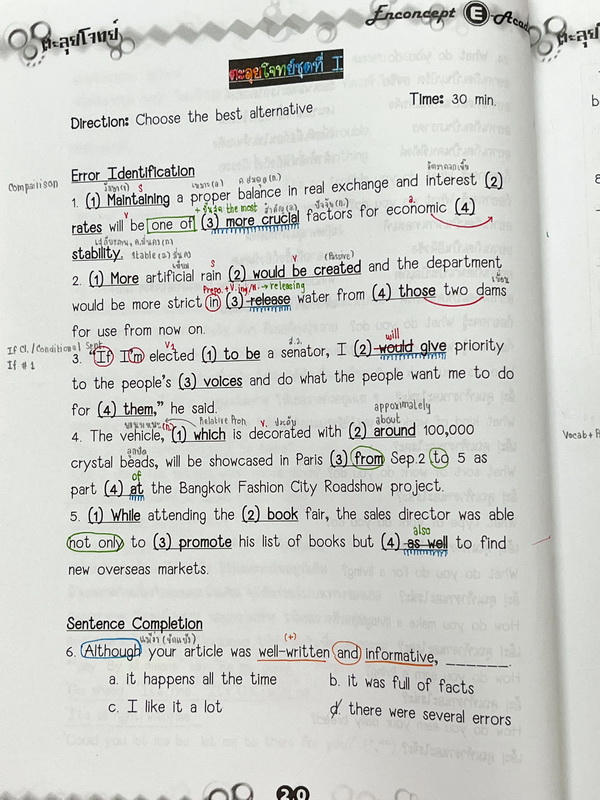 ตะลุยโจทย์
Enconcept E-Acad
ตะลุยโจทย์ชุดที่ I
Time: 30 min.
Direction: Choose the best alternative
Error Identification
Comparison
1. (1) Maintaining a proper balance in real exchange and interest (2)
+ ขั้นสุด the most
rates will be one of (3) more crucial factors for economic (4)
stability. stable (a) มั่นคง
(Passive)
2. (1) More artificial rain (2) would be created and the department
Prepo. + V.ing/N. → releasing
would be more strict in (3) release water from (4) those two dams
เขื่อน
for use from now on.
If Cl./Conditional Sent.
If #1
will
3. "If I'm elected (1) to be a senator, I (2) would give priority
to the people's (3) voices and do what the people want me to do
for (4) them," he said.
appoximately
Relative Pron
about
4. The vehicle, (1) which is decorated with (2) around 100,000
ลูกปัด
crystal beads, will be showcased in Paris (3) from Sep.2 to 5 as
of
part (4) at the Bangkok Fashion City Roadshow project.
5. (1) While attending the (2) book fair, the sales director was able
also
not only to (3) promote his list of books but (4) as well to find
new overseas markets.
Sentence Completion
แม้ว่า (ขัดแย้ง) (+)
6. Although your article was well-written and informative, _______.
a. it happens all the time b. it was full of facts
c. I like it a lot d. there were several errors
20
Vocab +